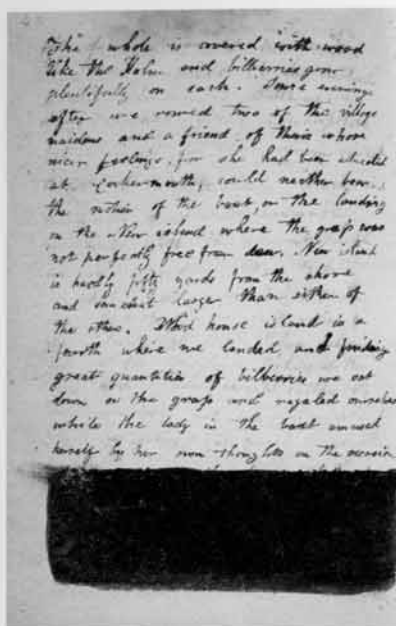 The whole is covered with wood
like the Holm and bilberries grow
plentifully on each. Some evenings
after we rowed two of the village
maidens and a friend of theirs whose
nicer feelings, for she had been educated
at Cockermouth, could neither bear
the motion of the boat, or the landing
on the New island where the grass was
not perfectly free from dew. New island
is hardly fifty yards from the shore
and somewhat larger than either of
the other. house island is a
fourth where we landed, and finding
great quantities of bilberries we sat
down on the grass and regaled ourselves
while the lady in the boat amused
herself by her own thoughts on the occasion